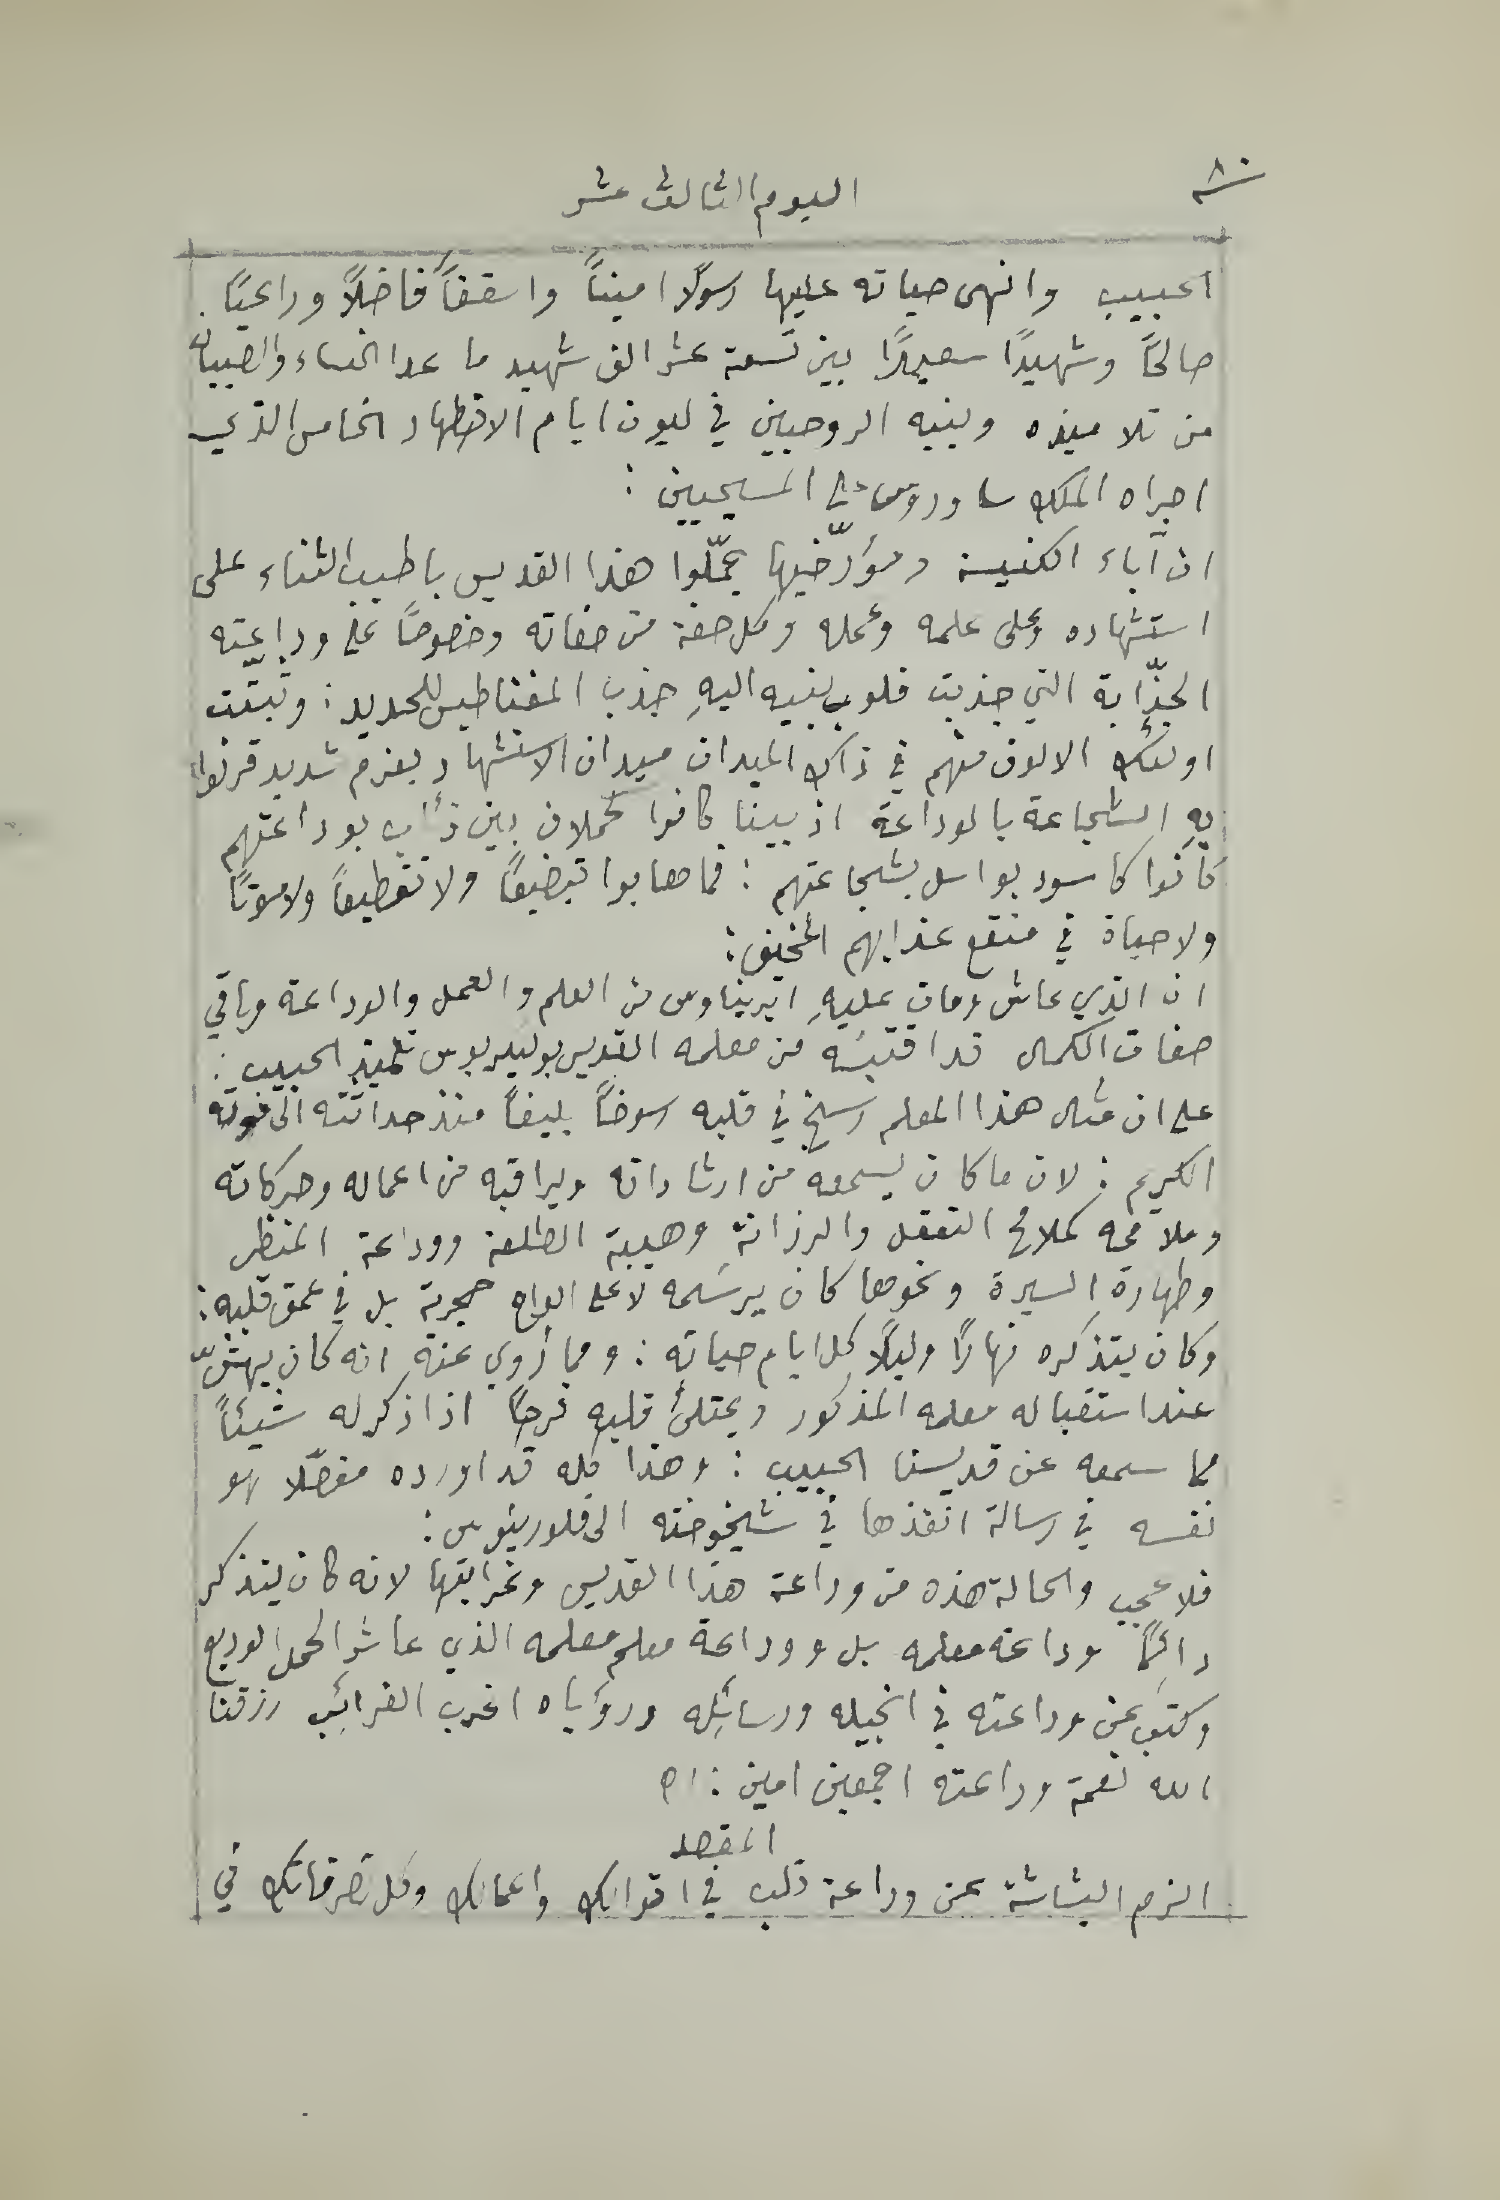 ٨٠
اليوم الثالث عشر
الحبيب وانهى حياته عليها رسولًا اميناً واسقفاً فاضلاً وراعيًا
صالحًا وشهيدًا سعيدًا بين تسعة عشر الف شهيد ما عدا النساء والصبيان
من تلاميذه وبنيه الروحيين في ليون ايام الاضطهاد الخامس الذي
اجراه الملك ساوروس على المسيحيين :
ان آباء الكنيسة ومؤرّخيها يجمّلوا هذا القديس باطيب الثناء على
استشهاده وعلى علمه وعمله وكل صفة من صفاته وخصوصًا على وداعته
الجذّابة التي جذبت قلوب بنيه اليهِ جذب المغناطيس للحديد : وثبتت
اولئك الالوف منهم في ذاك الميدان ميدان الاستشهاد بعزم شديد قرنوا
بهِ الشجاعة بالوداعة اذ بينا كانوا كحملان بين ذئاب بوداعتهم
كانوا كاسود بواسل بشجاعتهم : فما هابوا تبضيعًا ولا تقطيعاً ولا موتًا
ولا حياة في منقع عذابهم المخيف :
ان الذي عاش ومات عليهِ ايريناوس من العلم والعمل والوداعة وباقي
صفات الكمال قد اقتبسَه من معلمه القديس بوليكربوس تلميذ الحبيب :
على ان مثال هذا المعلم رسخ في قلبه رسوخًا بليغاً منذ حداثته الى موته
الكريم : لان ما كان يسمعه من ارشاداته ويراقبه من اعماله وحركاته
وملامحه كملامح التعقل والرزانة وهيبة الطلعة ووداعة المنظر
وطهارة السيرة ونحوها كان يرسَمه لا على الواح حجرية بل في عمق قلبه :
وكان يتذكره نهارًا وليلًا كل ايام حياته : ومما رُوي عنه انه كان يهتشّ
عند استقباله معلمه المذكور ويمتلئ قلبه فرحًا اذا ذكر له شيئاً
مما سمعه عن قديسنا الحبيب : وهذا كله قد اورده مفصّلا هو
نفسه في رسالة انفذها في شيخوخته الى فلورينوس :
فلا عجب والحالة هذه من وداعة هذا القديس وغرابتها لانه كان يتذكر
دائمًا وداعة معلمه بل ووداعة معلم معلمه الذي عاشر الحمل الوديع
وكتب عن وداعته في انجيله ورسائله ورؤياه اغرب الغرائب رزقنا
الله نعمة وداعته اجمعين امين : اه
المقصد
الزم البشاشة عن وداعة قلب في اقوالك واعمالك وكل تصرفاتك في